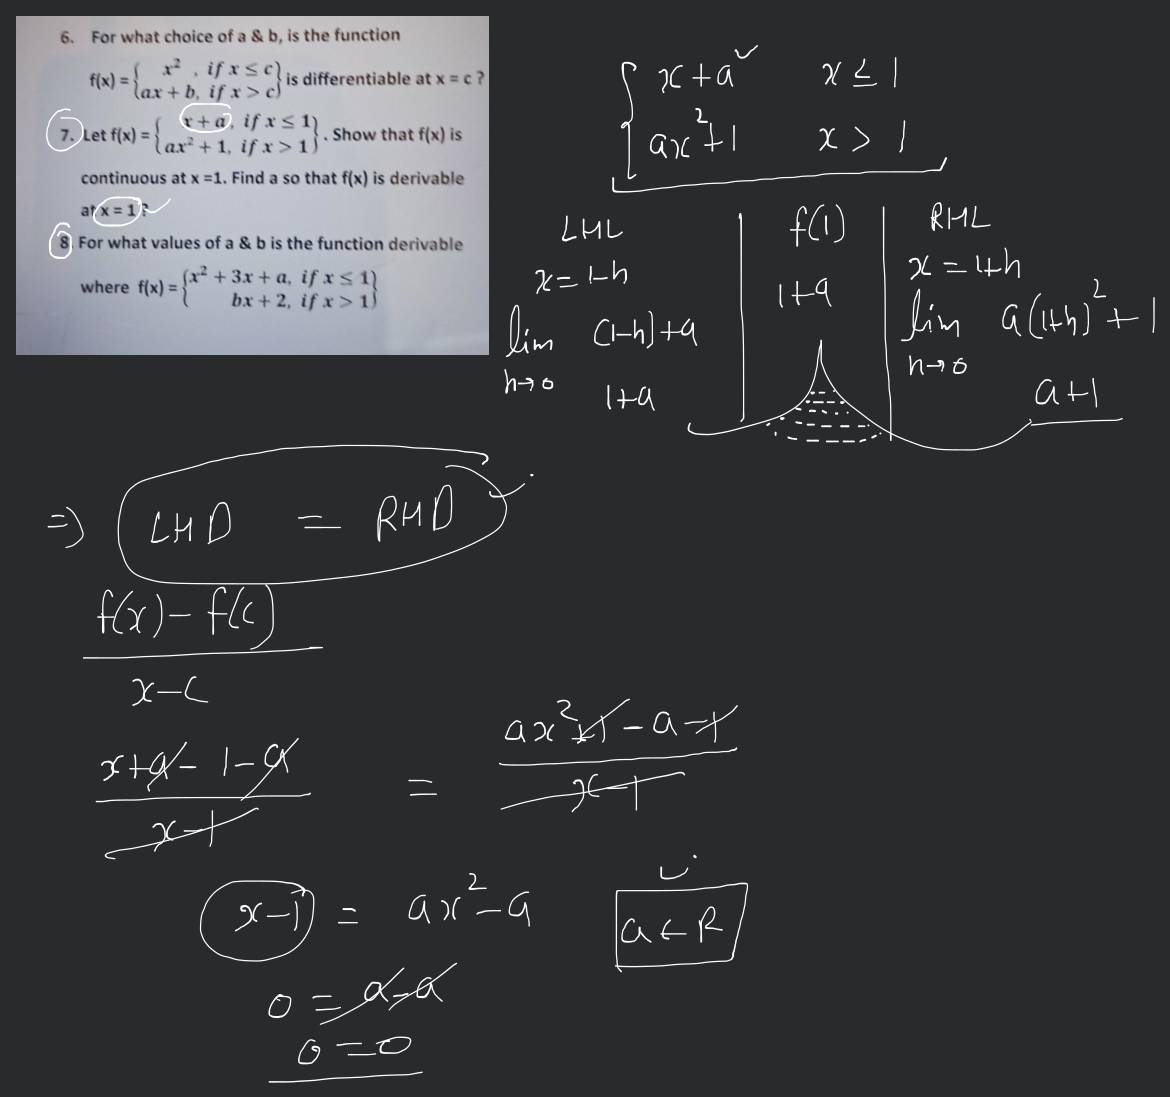 6. For what choice of a & b, is the function
f(x) = { x² , if x ≤ c
ax + b, if x > c } is differentiable at x = c ?
7. Let f(x) = { x + a, if x ≤ 1
ax² + 1, if x > 1 } . Show that f(x) is
continuous at x =1. Find a so that f(x) is derivable
at x = 1?
8. For what values of a & b is the function derivable
where f(x) = { x² + 3x + a, if x ≤ 1
bx + 2, if x > 1 }
{ x+a x ≤ 1
ax²+1 x > 1
LHL
x = 1-h
lim (1-h)+a
h→0
1+a
f(1)
1+a
RHL
x = 1+h
lim a(1+h)²+1
h→0
a+1
⇒ LHD = RHD
f(x) - f(c)
x-c
x+a-1-a = ax²+1-a-1
x-1 x-1
x-1 = ax²-a
a ∈ R
0 = a-a
0=0